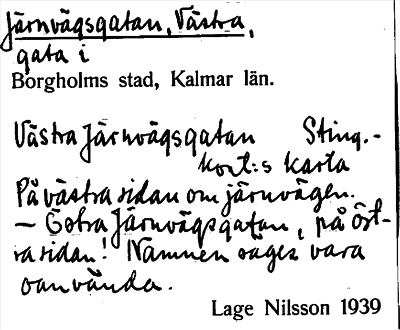 Järnvägsgatan, Västra,
gata i
Borgholms stad, Kalmar län.
Västra Järnvägsgatan Sting.-
kort:s karta
På västra sidan om järnvägen.
– Östra Järnvägsgatan, på öst-
ra sidan! Namnen säges vara
oanvända.
Lage Nilsson 1939